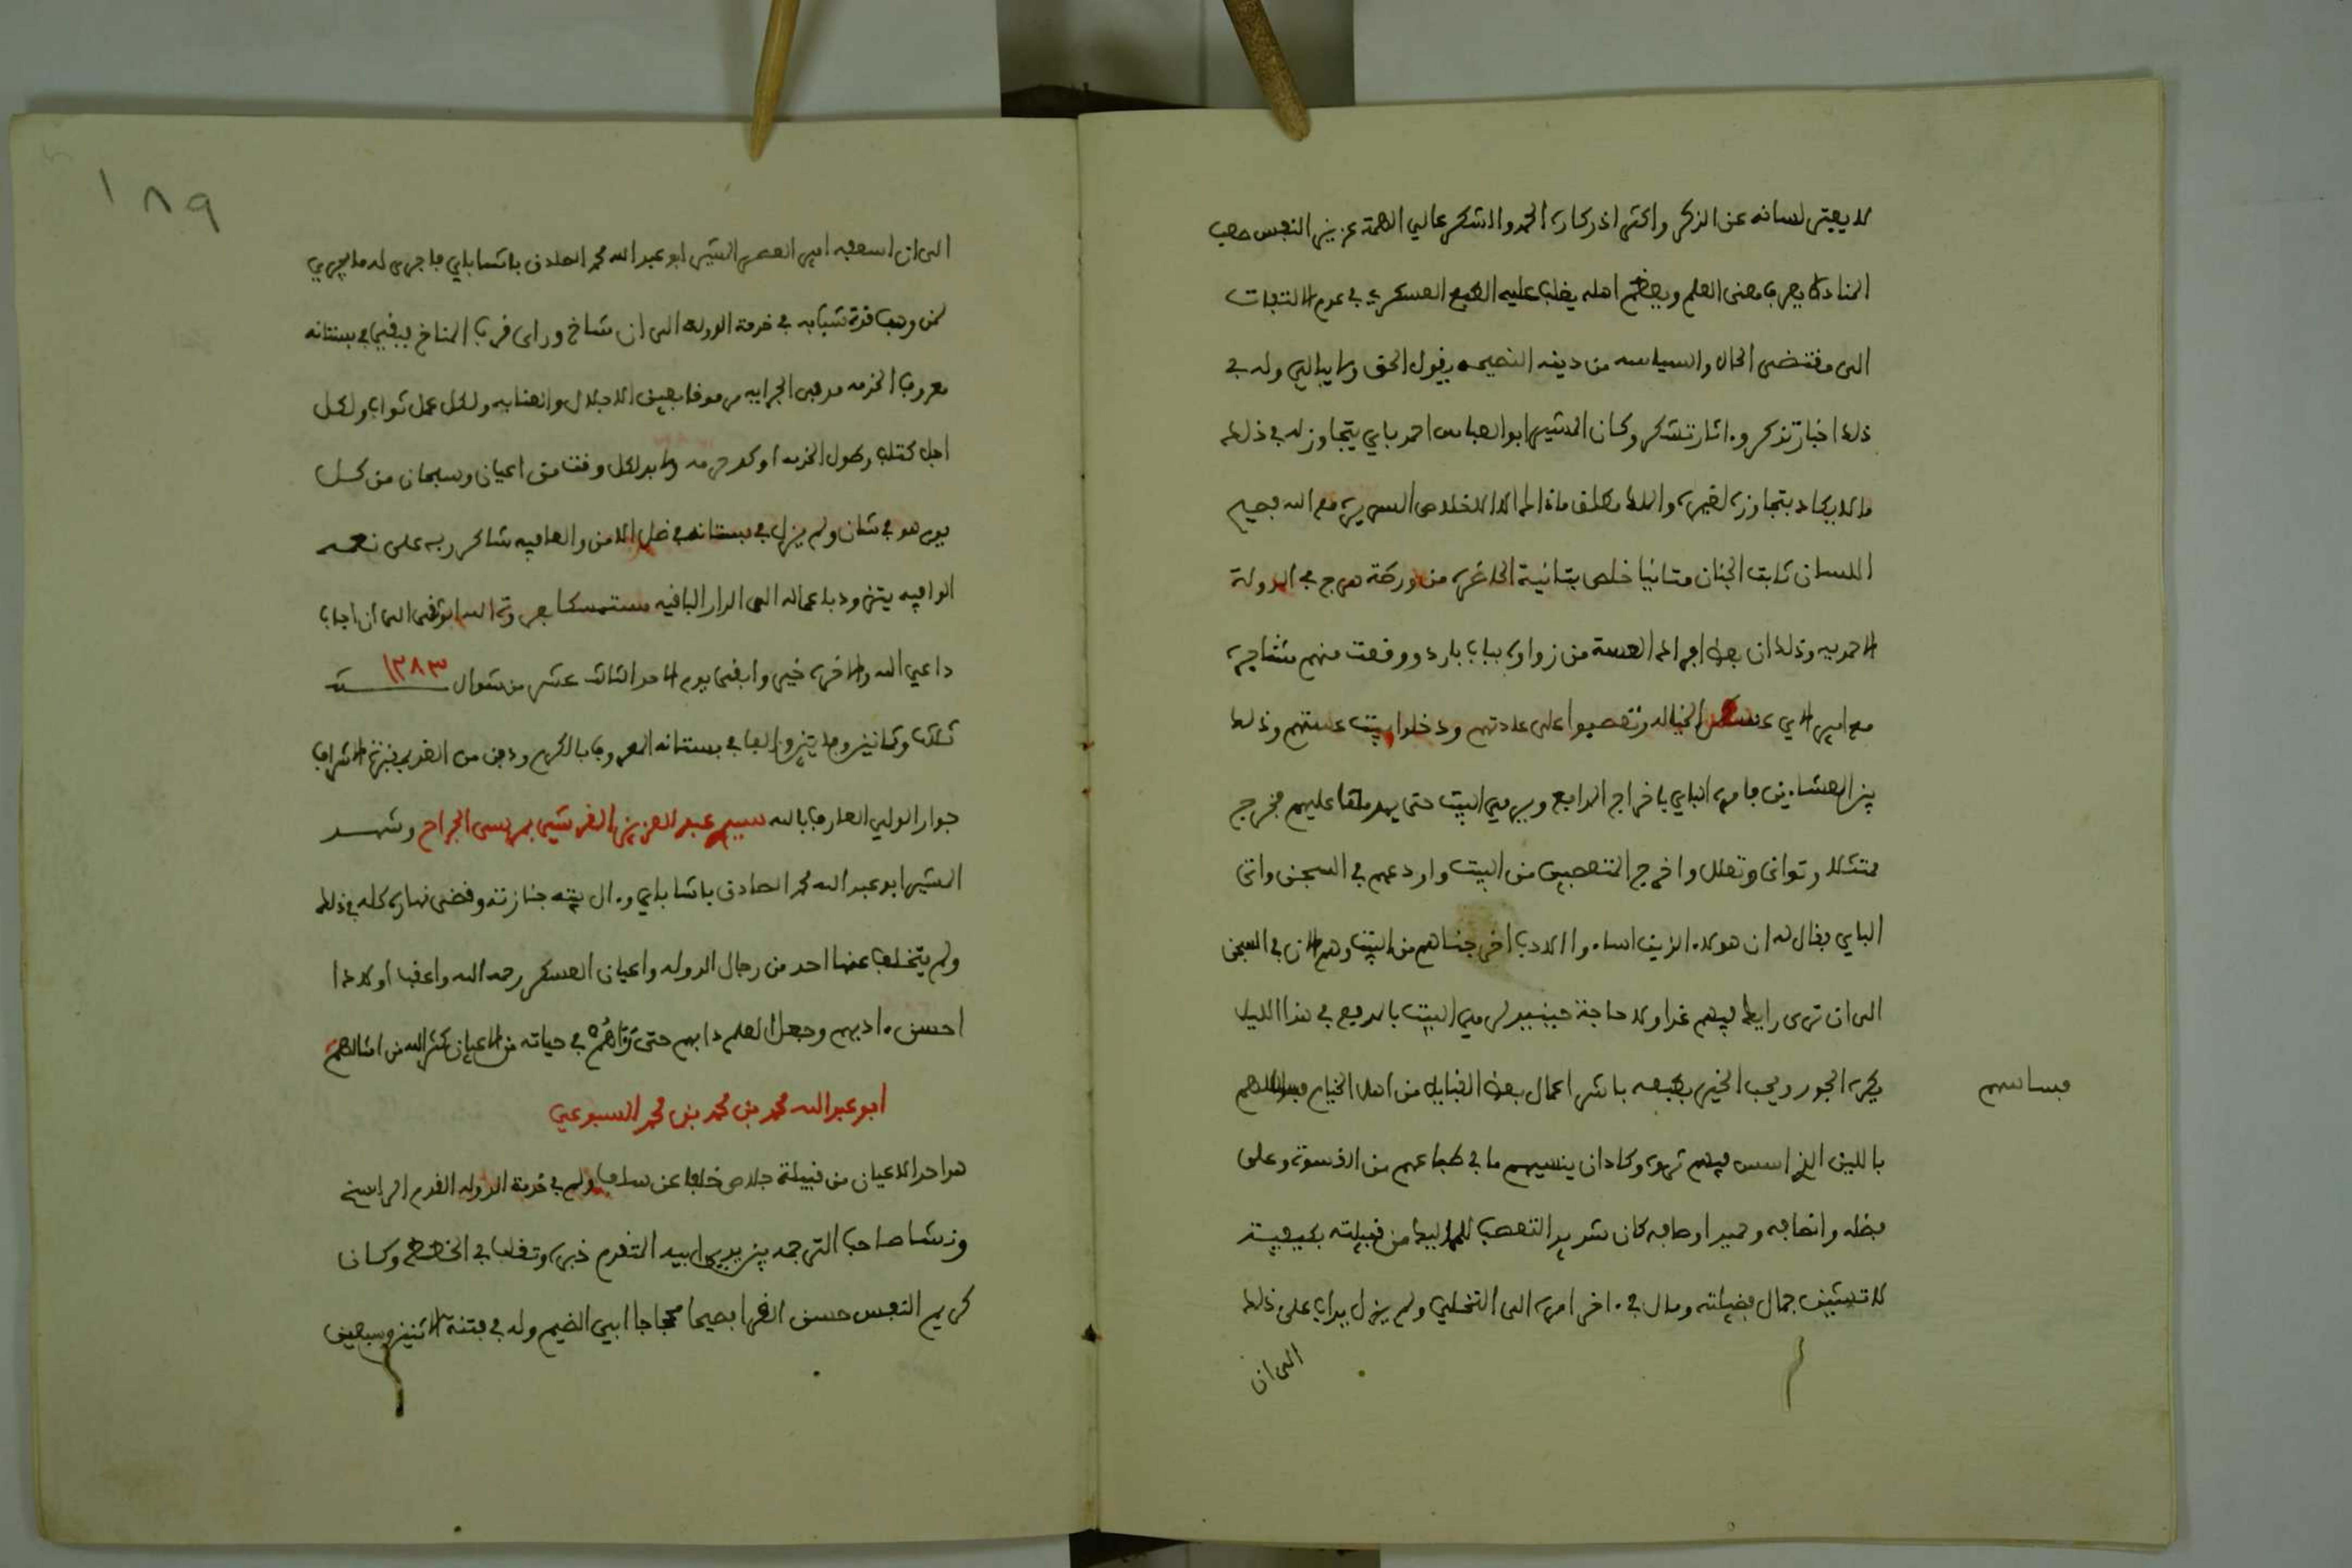 لا يفتر لسانه عن الذكر واكثر اذكاره الحمد والشكر عالي الهمة عزيز النفس صعب
المناداة يعرف معنى العلم ويعظم اهله يغلب عليه الطبع العسكري في عدم الالتفات
الى مقتضى الحال والسياسه من دينه النصيحه يقول الحق ولا يبالي وله في
ذلك اخبار تذكر وءاثار تشكر وكان المشير ابو العباس احمد باي يتجاوز له في ذلك
ما لا يكاد يتجاوزه لغيره والله ما ذاك الا لاخلاص السريره مع الله فصيح
اللسان ثابت الجنان متانيا خلص بتانيه الحاضره من ورطة هرج في الدولة
الاحمديه وذلك ان بعض افراد العسة من زواوه بباب بارد ووقعت منهم مشاجرة
مع امير الاي عسكر الخياله وتعصبوا على عادتهم ودخلوا بيت عستهم وذلك
بين العشاءين فامره الباي باخراج المدافع ويرمي البيت حتى يهدمها عليهم فخرج
ممتثلا وتوانى وتعلل واخرج المتعصبين من البيت واودعهم في السجن واتى
الباي وقال له ان هولاء الذين اساءوا الادب اخرجناهم من البيت وهم الان في السجن
الى ان ترى رايك فيهم غدا ولا حاجة حينئذ لرمي البيت بالمدفع في هذا الليل
يكره الجور ويحب الخير بطبعه باشر اعمال بعض القبايل من اهل الخيام
فساسهم
باللين الذي اسس فيهم ثروة وكاد ان ينسيهم ما في طباعهم من القسوة وعلى
فضله وانصافه وحميد اوصافه كان شديد التعصب للمماليك من قبيلته بكيفية
لا تشين جمال فضيلته ومال في ءاخر امره الى التخلي ولم يزل يداب على ذلك
الى ان
١٨٩
الى ان اسعفه امير العصر المشير ابو عبد الله محمد الصادق باشا باي فاجرى له ما يجري
لمن وهب قوة شبابه في خدمة الدوله الى ان شاخ وراى قرب المناخ فبقي في بستانه
معروف الخدمه موفى الجرايه مرموقا بعين الاجلال والعنايه ولكل عمل ثواب ولكل
اجل كتاب وطول الخدمه اوكد حرمه ولا بد لكل وقت من اعيان وسبحان من كل
يوم هو في شان ولم يزل في بستانه في ظل الامن والعافيه شاكر ربه على نعمه
الوافيه يتزود باعماله الى الدار الباقيه مستمسكا بعروة الله الوثقى الى ان اجاب
داعي الله والاخرة خير وابقى يوم الاحد الثالث عشر من شوال سنة ١٢٨٣
ثلاث وثمانين ومايتين والف في بستانه المعروف بالكرم ودفن من الغد بتربة الاشراف
جوار الولي العارف بالله سيدي عبد العزيز القرشي بمرسى الجراح وشهد
المشير ابو عبد الله محمد الصادق باشا باي وءال بيته جنازته وقضى نهاره كله في ذلك
ولم يتخلف عنها احد من رجال الدوله واعيان العسكر رحمه الله واعقب اولادا
احسن ءادبهم وجعل العلم دابهم حتى رءاهم في حياته من الاعيان كثر الله من امثالهم
ابو عبد الله محمد بن محمد بن محمد السبوعي
هو احد الاعيان من قبيلة جلاص خلفا عن سلف ولهم في خدمة الدوله القدم الراسخ
ونشا صاحب الترجمه بين يدي ابيه المتقدم ذكره وتقلب في الخطط وكان
كريم النفس حسن القرا فصيحا محجاجا ابي الضيم وله في فتنة الاثنين وسبعين